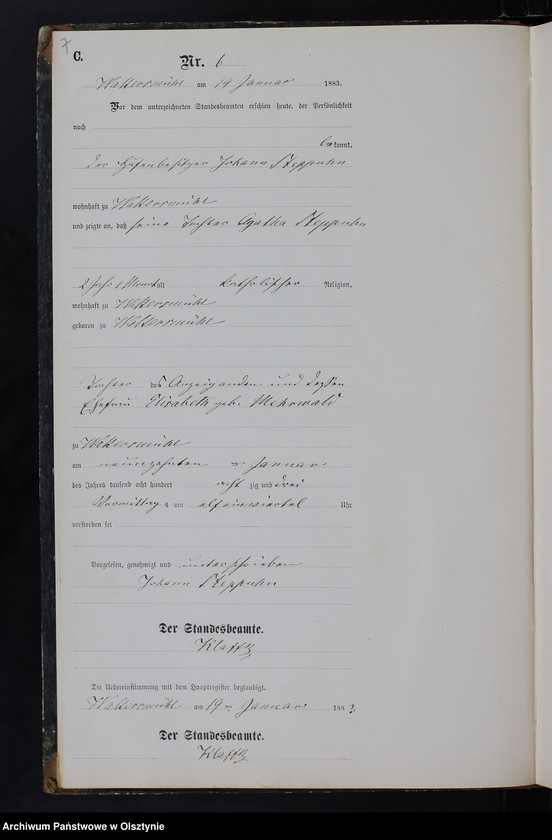 7
C.
Nr. 6
Waltersmühl am 19 Januar 1883.
Vor dem unterzeichneten Standesbeamten erschien heute, der Persönlichkeit
nach
bekannt,
der Hufenbesitzer Johann Steppuhn
wohnhaft zu Waltersmühl
und zeigte an, daß seine Tochter Agatha Steppuhn
2 Jahr 1 Monat alt katholischer Religion,
wohnhaft zu Waltersmühl
geboren zu Waltersmühl
Tochter des Anzeigenden und dessen
Ehefrau Elisabeth geb. Mehrwald
zu Waltersmühl
am neunzehnten Januar
des Jahres tausend acht hundert acht zig und drei
Vormittags um elfeinviertel Uhr
verstorben sei
Vorgelesen, genehmigt und unterschrieben
Johann Steppuhn
Der Standesbeamte.
Klafft
Die Uebereinstimmung mit dem Hauptregister beglaubigt.
Waltersmühl am 19 ten Januar 1883
Der Standesbeamte.
Klafft
Archiwum Państwowe w Olsztynie